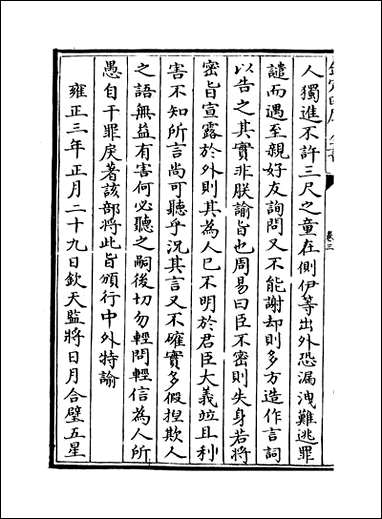 人獨進不許三尺之童在側伊等出外恐漏洩難逃罪
譴而遇至親好友詢問又不能謝却則多方造作言詞
以告之其實非朕諭旨也周易曰臣不密則失身若將
密旨宣露於外則其為人已不明於君臣大義竝且利
害不知所言尚可聽乎況其言又不確實多假捏欺人
之語無益有害何必聽之嗣後切勿輕問輕信為人所
愚自干罪戾著該部將此旨頒行中外特諭
雍正三年正月二十九日欽天監將日月合璧五星
卷三